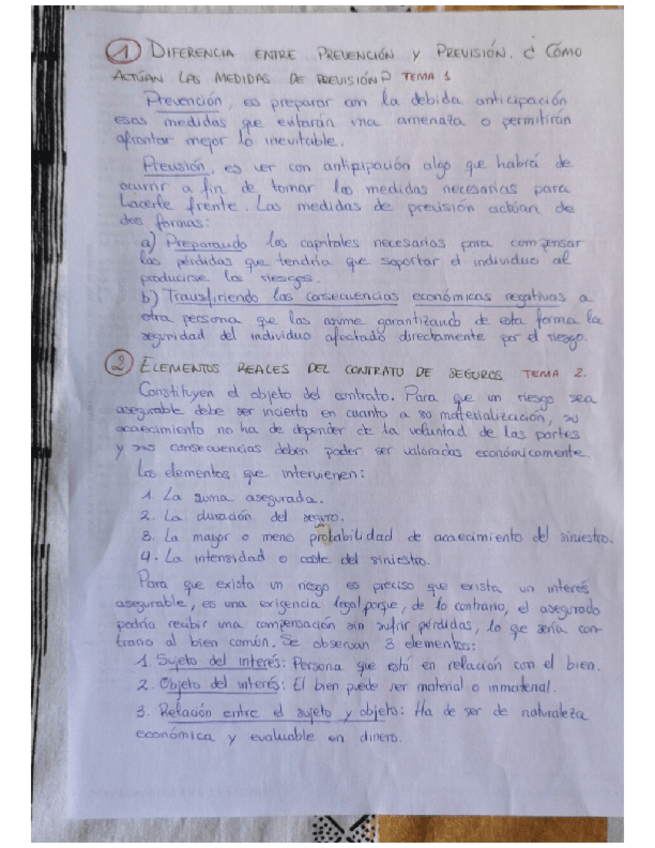 1 DIFERENCIA ENTRE PREVENCIÓN Y PREVISIÓN. ¿CÓMO
ACTÚAN LAS MEDIDAS DE PREVISIÓN? TEMA 1
Prevención, es preparar con la debida anticipación
esas medidas que evitarán una amenaza o permitirán
afrontar mejor lo inevitable.
Previsión, es ver con antipipación algo que habrá de
ocurrir a fin de tomar las medidas necesarias para
hacerle frente. Las medidas de previsión actúan de
dos formas:
a) Preparando los capitales necesarios para compensar
las pérdidas que tendría que soportar el individuo al
producirse los riesgos.
b) Transfiriendo las consecuencias económicas negativas a
otra persona que las asume garantizando de esta forma la
seguridad del individuo afectado directamente por el riesgo.
2 ELEMENTOS REALES DEL CONTRATO DE SEGUROS TEMA 2.
Constituyen el objeto del contrato. Para que un riesgo sea
asegurable debe ser incierto en cuanto a su materialización, su
acaecimiento no ha de depender de la voluntad de las partes
y sus consecuencias deben poder ser valoradas económicamente.
Los elementos que intervienen:
1. La suma asegurada.
2. La duración del seguro.
3. La mayor o meno probabilidad de acaecimiento del siniestro.
4. La intensidad o coste del siniestro.
Para que exista un riesgo es preciso que exista un interés
asegurable, es una exigencia legal porque, de lo contrario, el asegurado
podría recibir una compensación sin sufrir pérdidas, lo que sería con-
trario al bien común. Se observan 3 elementos:
1. Sujeto del interés: Persona que está en relación con el bien.
2. Objeto del interés: El bien puede ser material o inmaterial.
3. Relación entre el sujeto y objeto: Ha de ser de naturaleza
económica y evaluable en dinero.